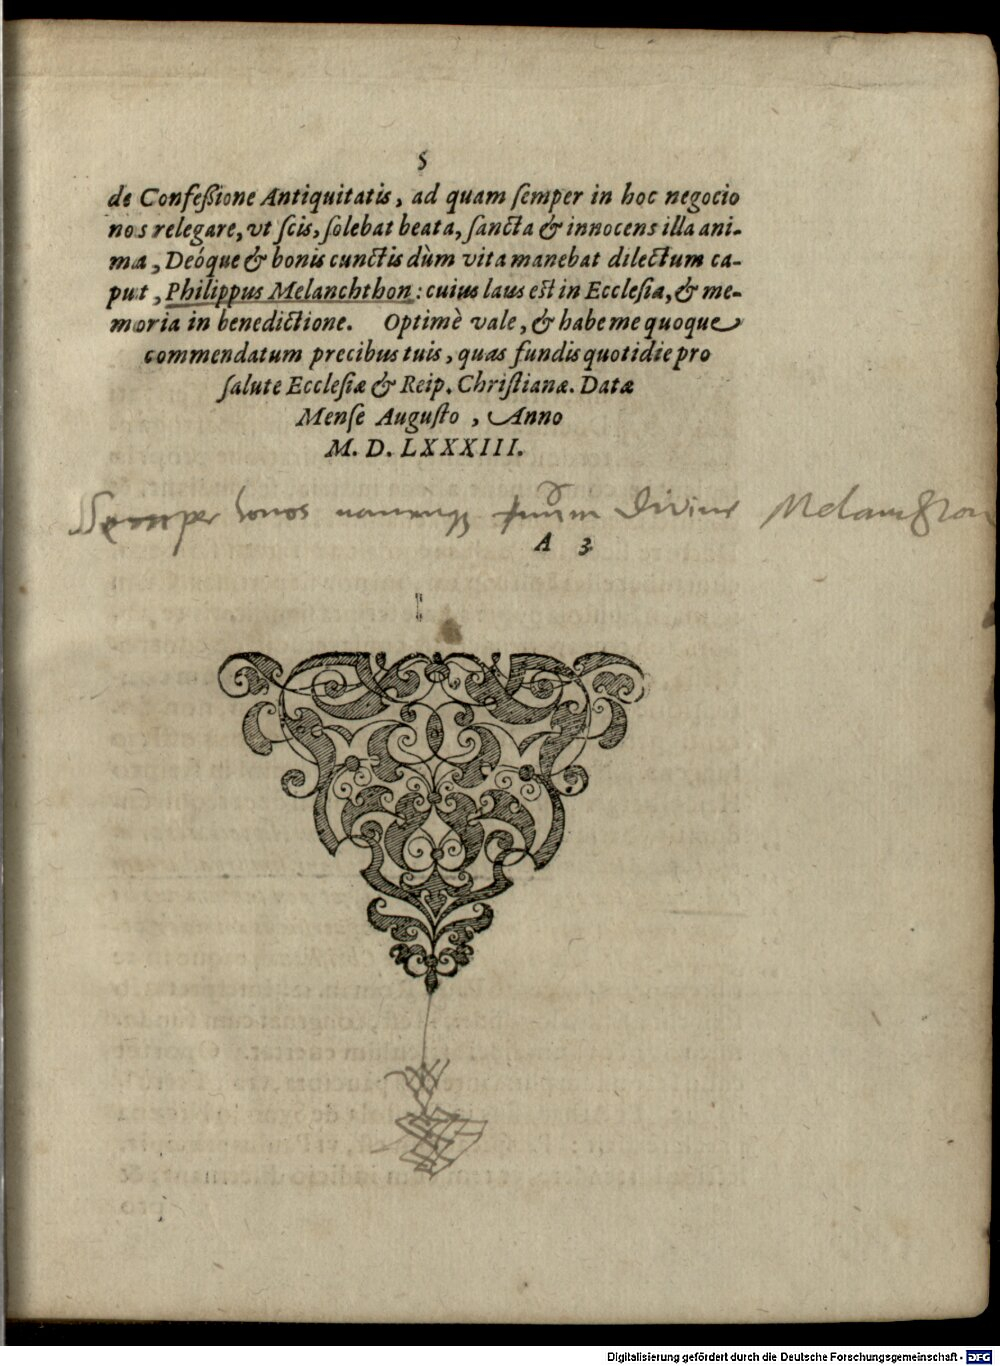 5
de Confeßione Antiquitatis, ad quam ſemper in hoc negocio
nos relegare, vt ſcis, ſolebat beata, ſancta & innocens illa ani-
ma, Deóque & bonis cunctis dùm vita manebat dilectum ca-
put, Philippus Melanchthon: cuius laus est in Ecclesia, & me-
moria in benedictione. Optimè vale, & habe me quoque
commendatum precibus tuis, quas fundis quotidie pro
ſalute Eccleſiæ & Reip. Chriſtianæ. Datæ
Menſe Auguſto, Anno
M. D. LXXXIII.
Semper honos nomenq; tuum Divine Melanthon
A 3
Digitalisierung gefördert durch die Deutsche Forschungsgemeinschaft - DFG